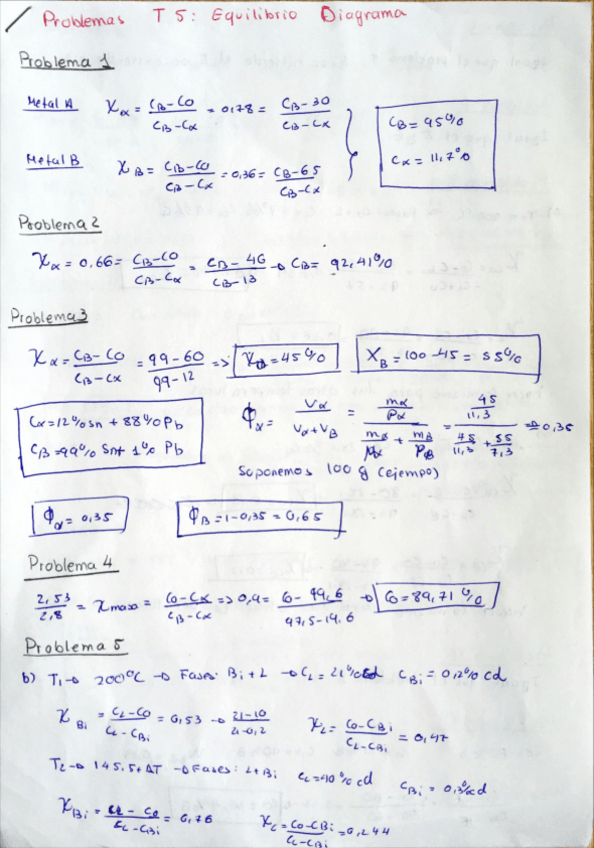 Problemas T5: Equilibrio Diagrama
Problema 1
Metal A Xα = (CB-CO)/(CB-Cα) = 0,78 = (CB-30)/(CB-Cα)
CB = 95%
Cα = 11,7%
Metal B XB = (CB-CO)/(CB-Cα) = 0,36 = (CB-65)/(CB-Cα)
Problema 2
Xα = 0.66 = (CB-CO)/(CB-Cα) = (CB-46)/(CB-13) → CB = 92,41%
Problema 3
Xα = (CB-CO)/(CB-Cα) = (99-60)/(99-12) => Xα = 45% XB = 100-45 = 55%
Cα = 12% Sn + 88% Pb
CB = 99% Sn + 1% Pb
ϕα = Vα/(Vα+VB) = (mα/ρα)/(mα/ρα + mB/ρB) = (45/11,3)/(45/11,3 + 55/7,3) => 0,35
Suponemos 100 g (ejempo)
ϕα = 0,35 ϕB = 1-0,35 = 0,65
Problema 4
2,53/2,8 = X masa = (CO-Cα)/(CB-Cα) => 0,9 = (CO-19,6)/(97,5-19.6) → CO = 89,71%
Problema 5
b) T1 → 200°C → Fases: Bi + L → CL = 21% cd CBi = 0,2% cd
XBi = (CL-CO)/(CL-CBi) = 0,53 → (21-10)/(21-0,2) XL = (CO-CBi)/(CL-CBi) = 0,47
T2 → 145.5+ΔT → Fases: L+Bi CL = 40% cd CBi = 0,3% cd
XBi = (CL-CO)/(CL-CBi) = 0,76 XL = (CO-CBi)/(CL-CBi) = 0,244